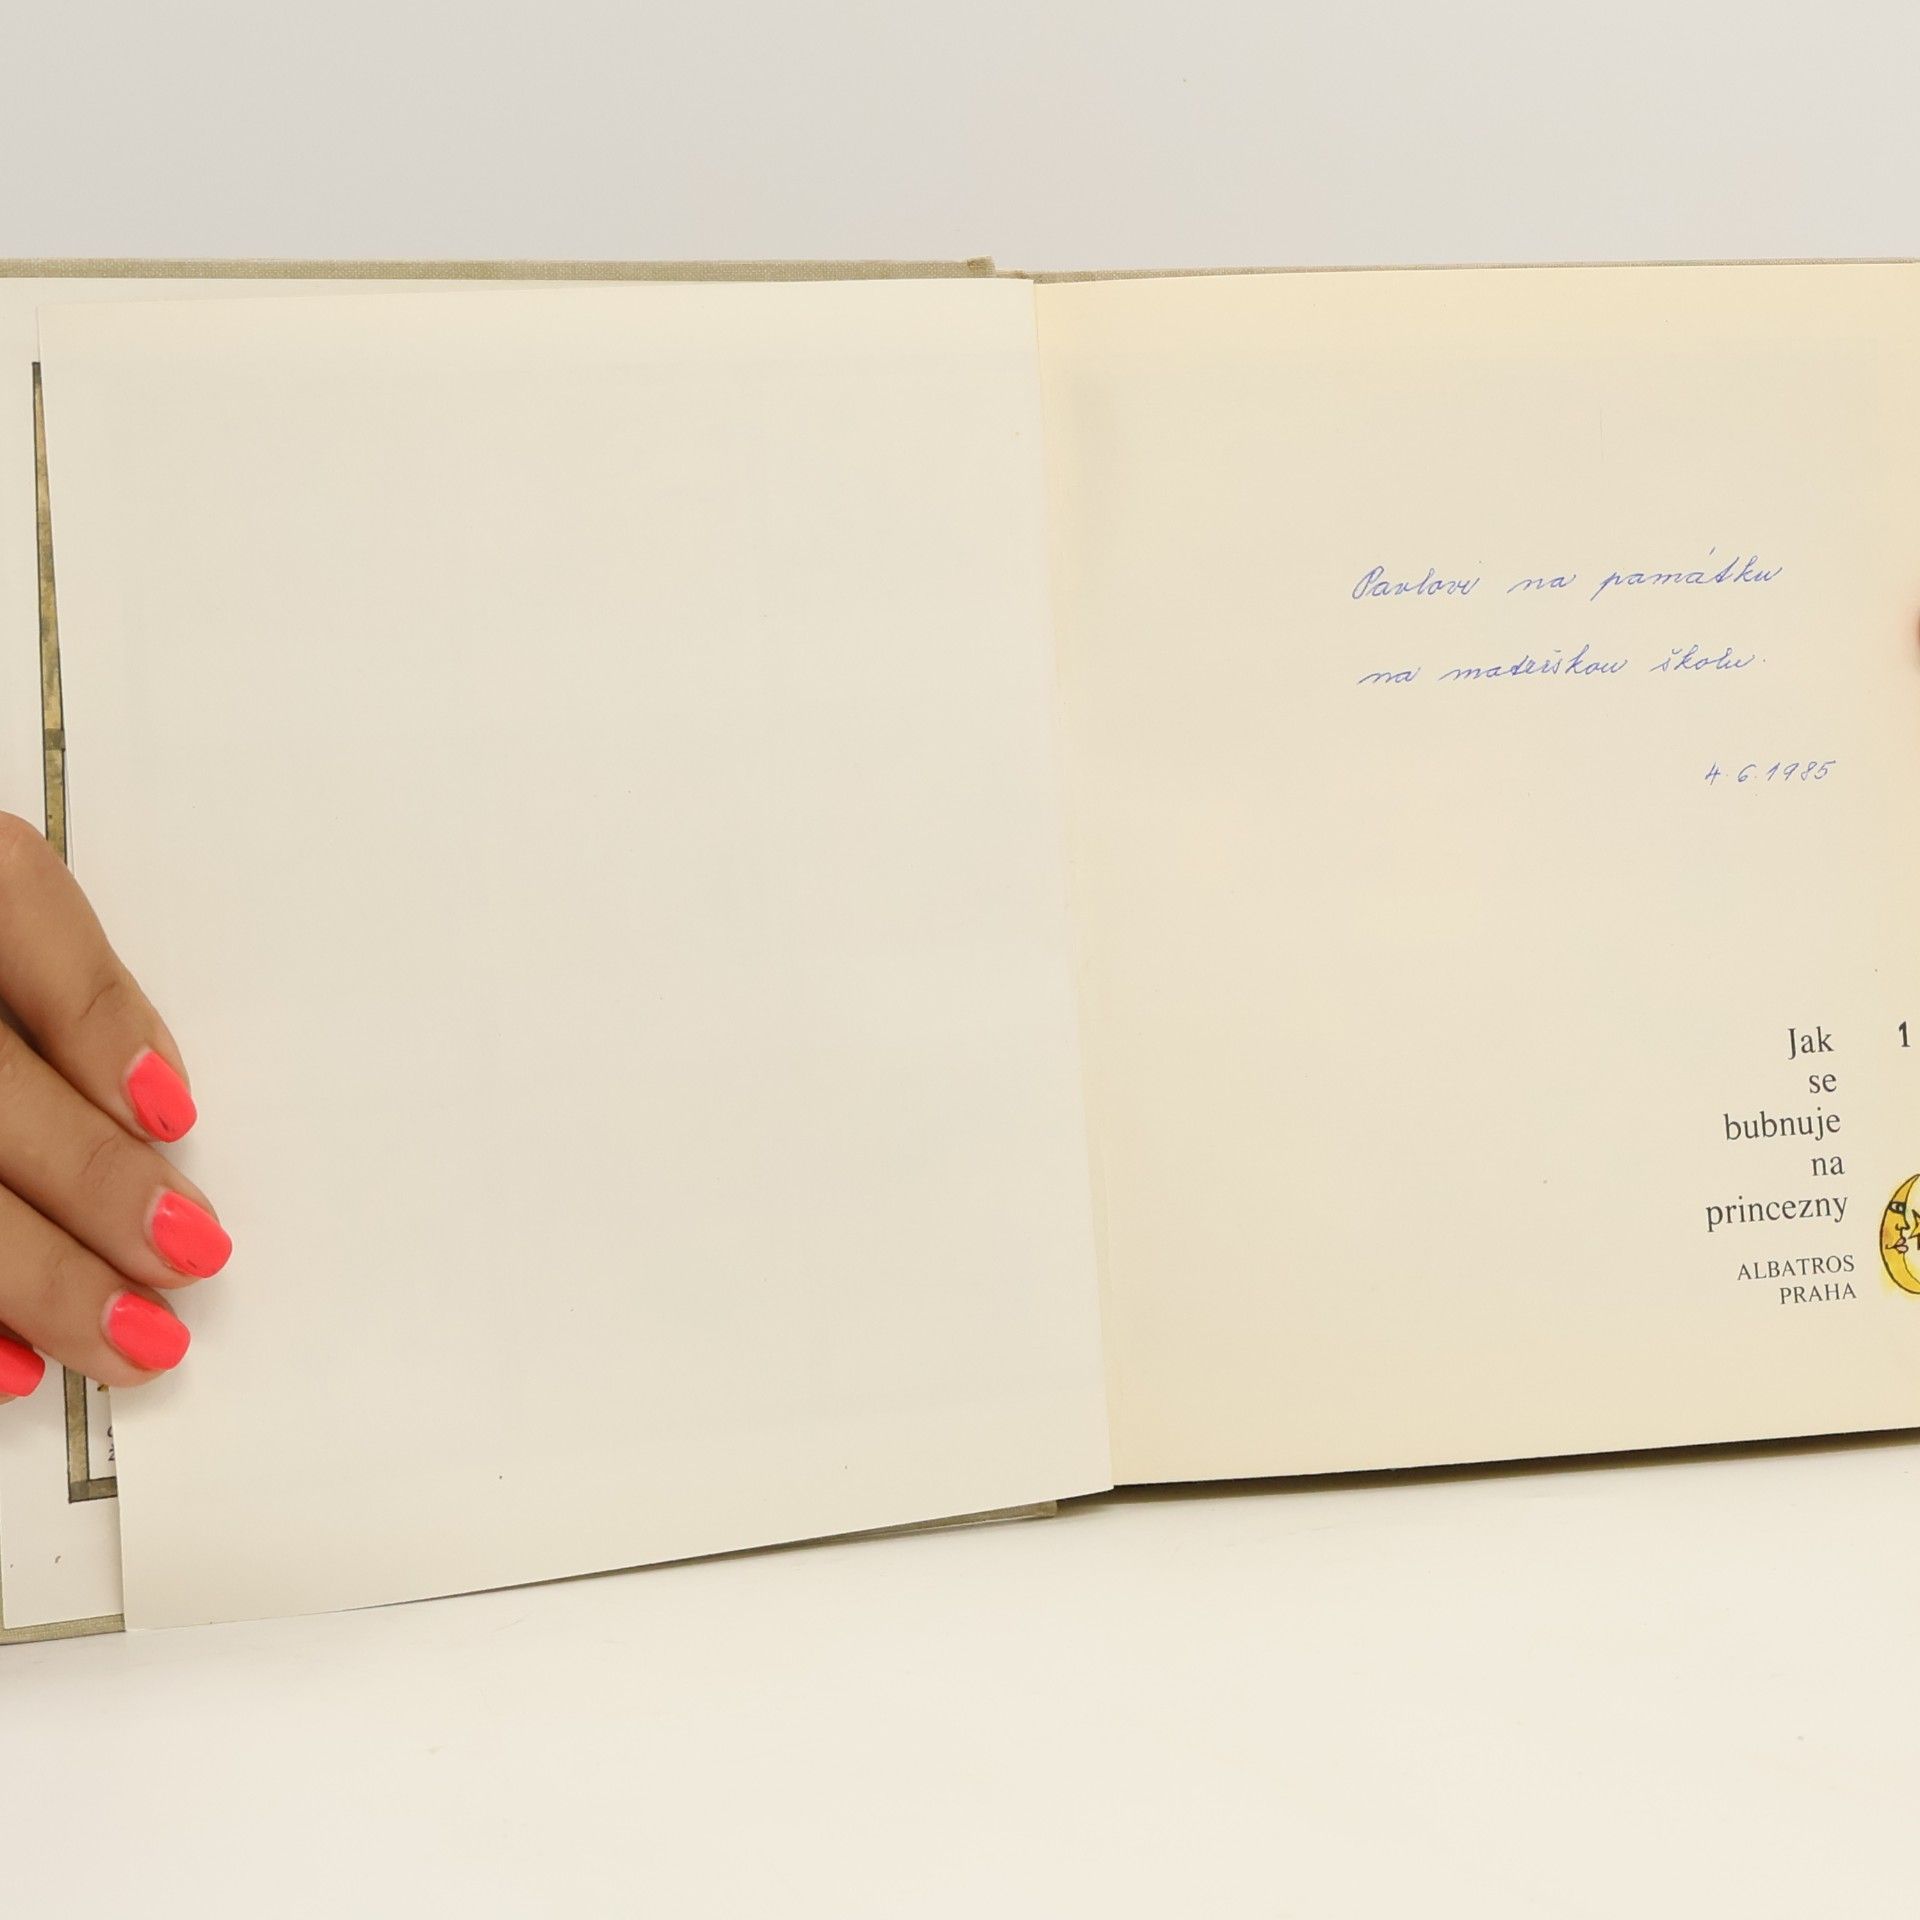 Pavlovi na památku
na mateřskou školu.
4.6.1985
Jak
se
bubnuje
na
princezny
1
ALBATROS
PRAHA